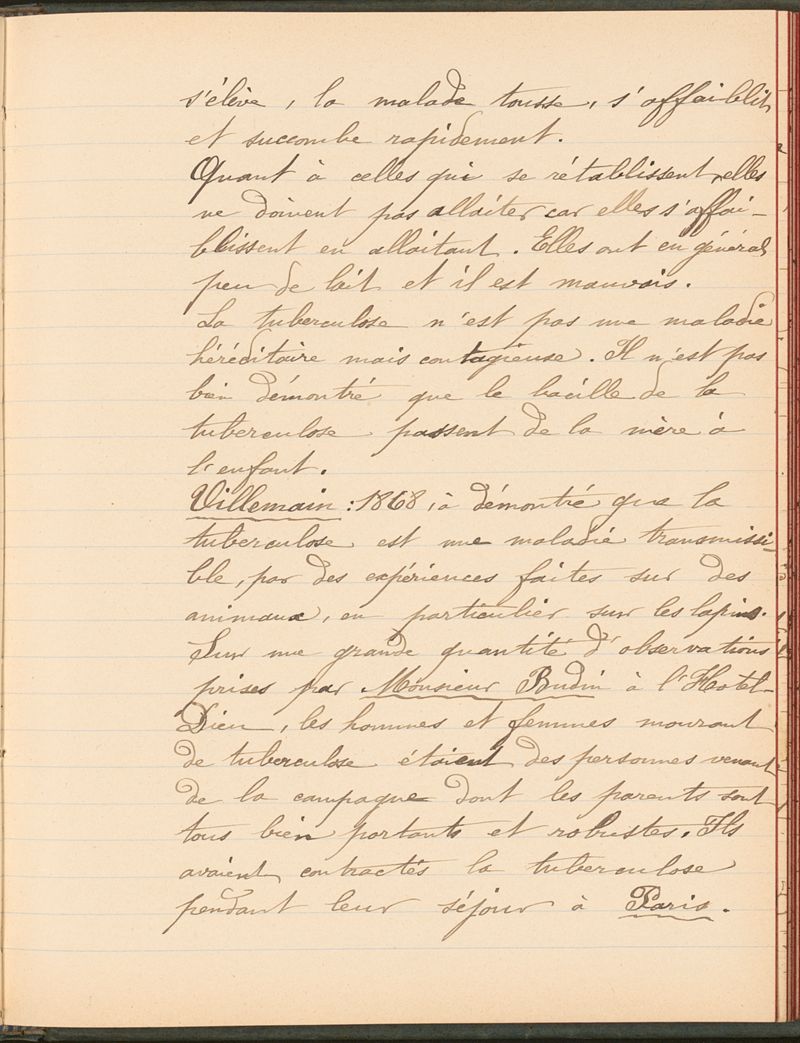 s'élève, la malade tousse, s'affaiblit
et succombe rapidement.
Quant à celles qui se rétablissent, elles
ne doivent pas allaiter car elles s'affai-
blissent en allaitant. Elles ont en général
peu de lait et il est mauvais.
La tuberculose n'est pas une maladie
héréditaire mais contagieuse. Il n'est pas
bien démontré que le bacille de la
tuberculose passent de la mère à
l'enfant.
Villemain : 1868, à démontré que la
tuberculose est une maladie transmissi-
ble, par des expériences faites sur des
animaux, en particulier sur les lapins.
Sur une grande quantité d'observations
prises par Monsieur Budin à l'Hotel-
Dieu, les hommes et femmes mourant
de tuberculose étaient des personnes venant
de la campagne dont les parents sont
tous bien portants et robustes. Ils
avaient contractés la tuberculose
pendant leur séjour à Paris.